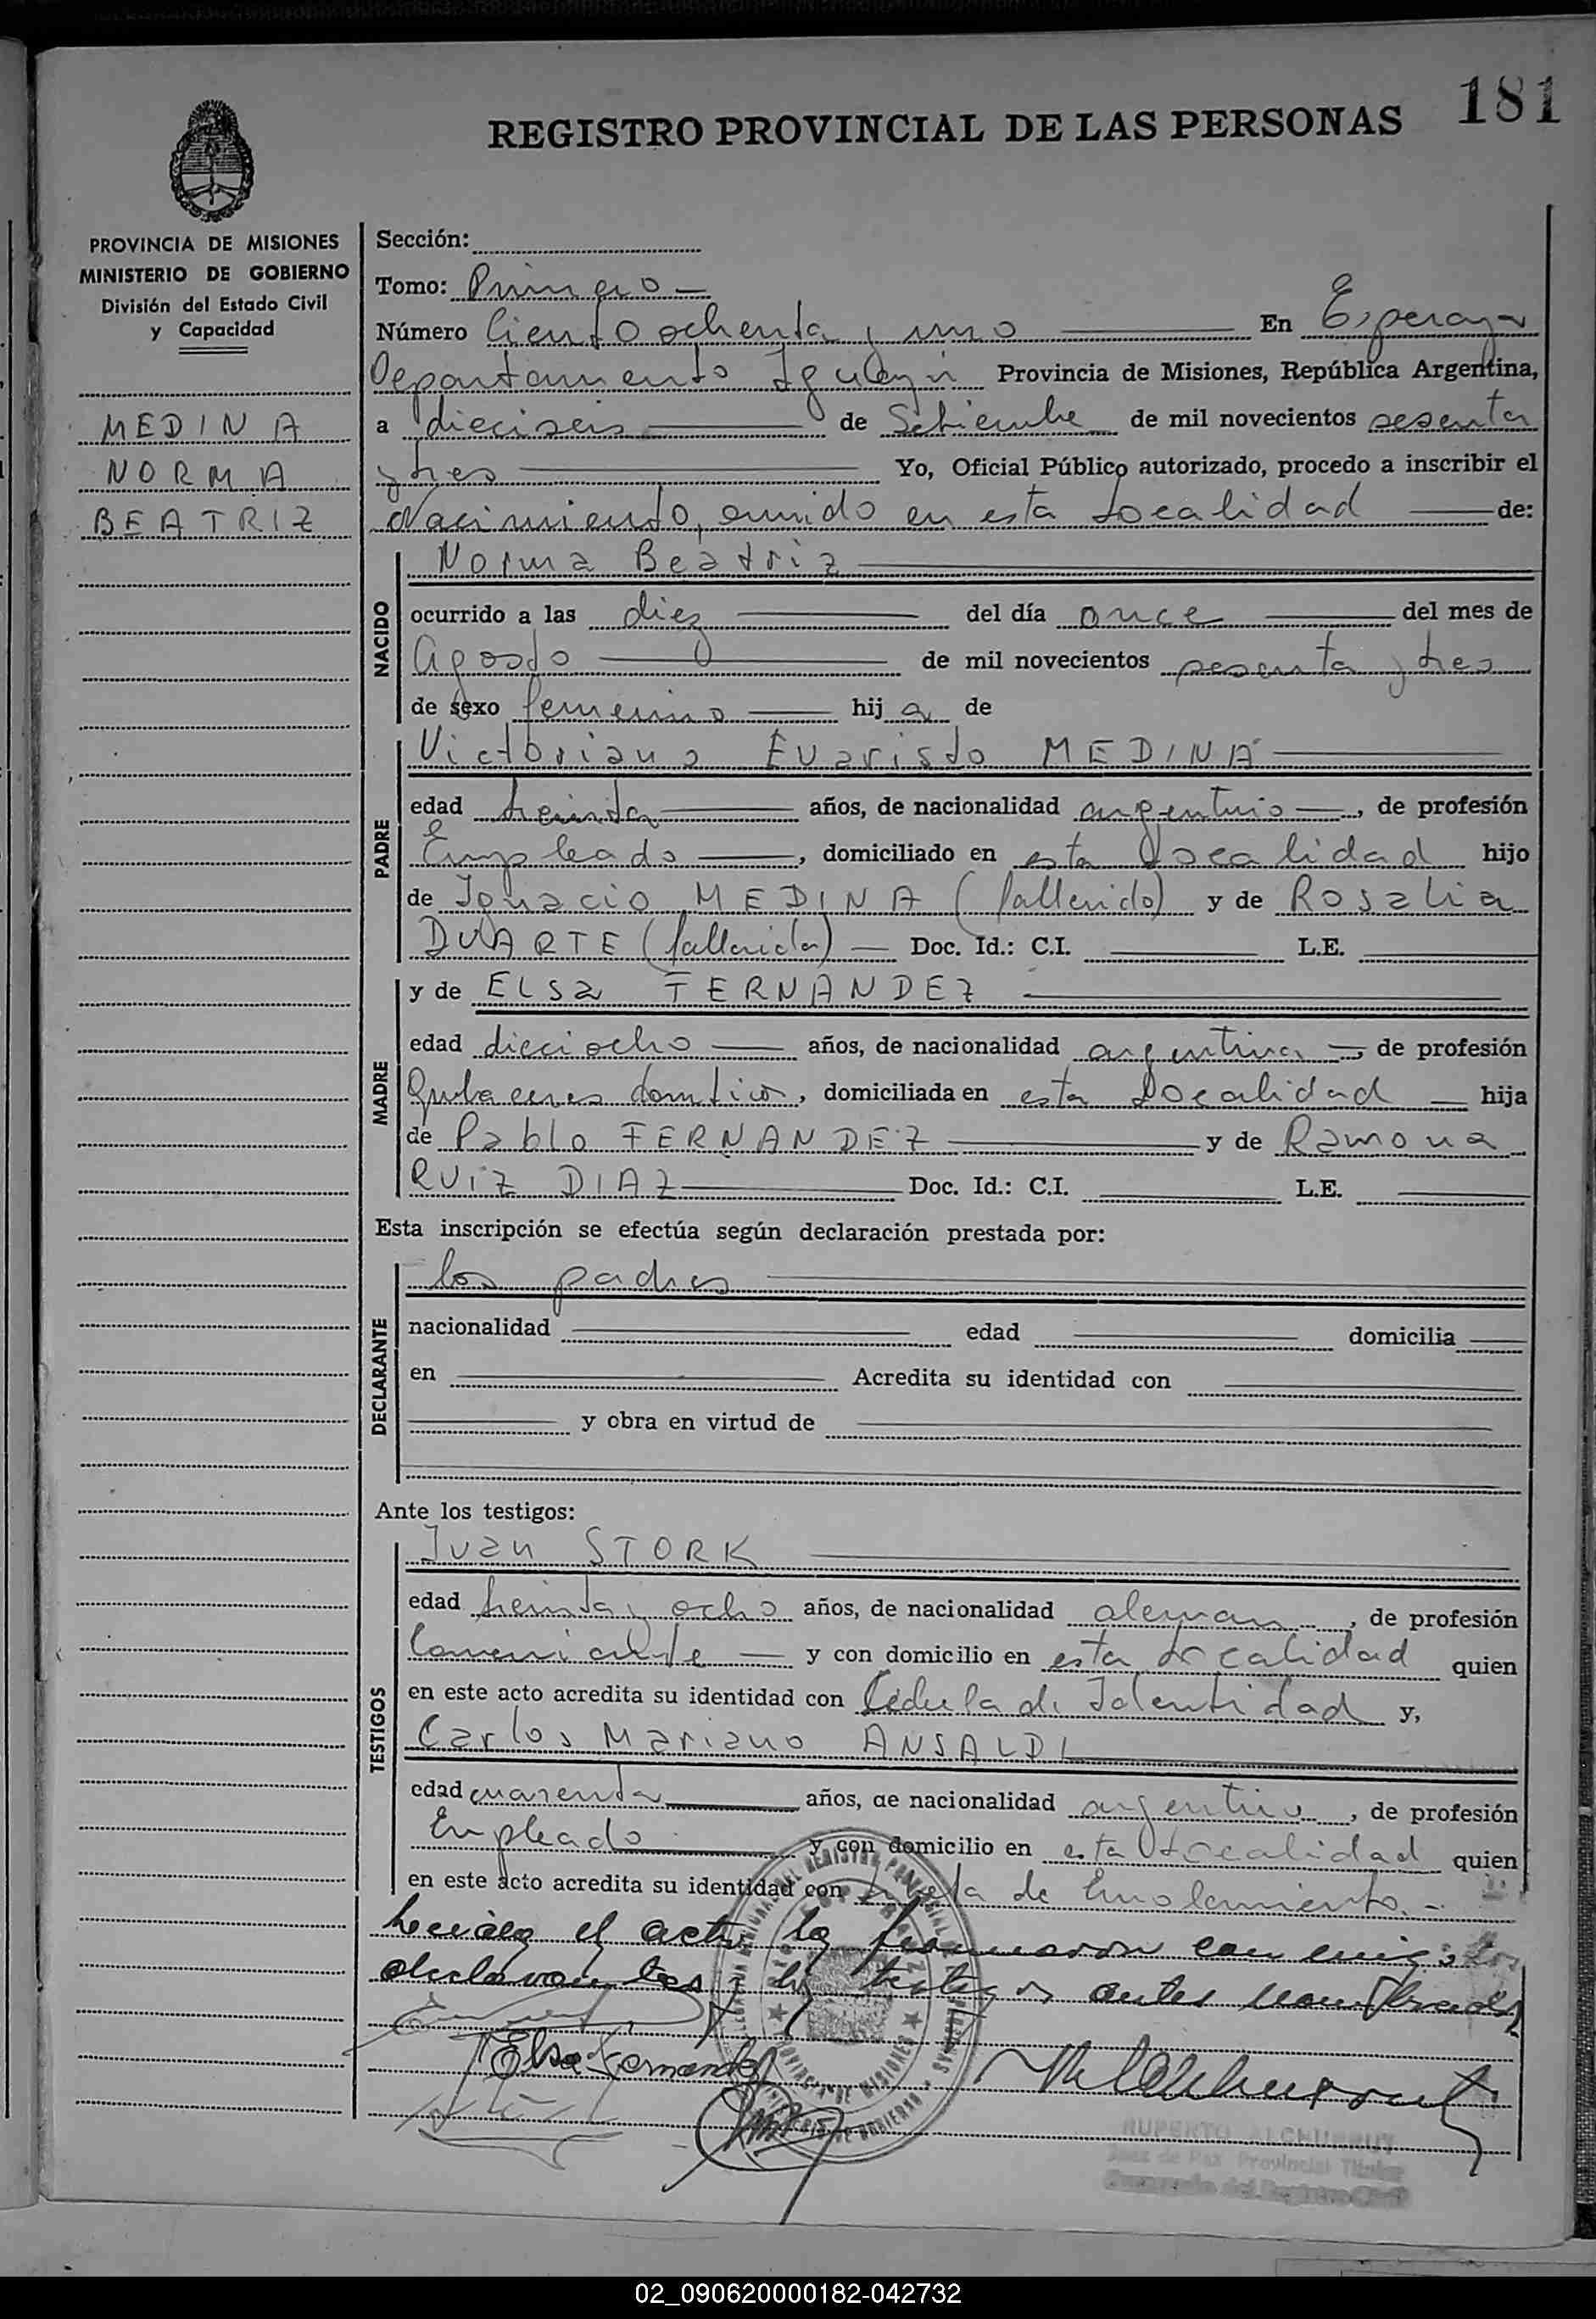 181
REGISTRO PROVINCIAL DE LAS PERSONAS
PROVINCIA DE MISIONES
MINISTERIO DE GOBIERNO
División del Estado Civil
y Capacidad
MEDINA
NORMA
BEATRIZ
Sección:
Tomo: Primero —
Número Ciento ochenta y uno — En Esperanza
Departamento Iguazú Provincia de Misiones, República Argentina,
a dieciseis — de Setiembre de mil novecientos sesenta
y tres — Yo, Oficial Público autorizado, procedo a inscribir el
Nacimiento, en esta localidad — de:
NACIDO
Norma Beatriz —
ocurrido a las diez — del día once — del mes de
Agosto — de mil novecientos sesenta y tres
de sexo femenino — hij a de
PADRE
Victoriano Evaristo MEDINA —
edad treinta — años, de nacionalidad argentino —, de profesión
Empleado —, domiciliado en esta localidad hijo
de Ignacio MEDINA (fallecido) y de Rosalia
DUARTE (fallecida) — Doc. Id.: C.I. — L.E. —
MADRE
y de Elsa FERNANDEZ —
edad dieciocho — años, de nacionalidad argentina —, de profesión
domiciliada en esta localidad — hija
de Pablo FERNANDEZ — y de Ramona
RUIZ DIAZ — Doc. Id.: C.I. — L.E. —
Esta inscripción se efectúa según declaración prestada por:
DECLARANTE
los padres —
nacionalidad — edad — domicilia —
en — Acredita su identidad con —
— y obra en virtud de —
Ante los testigos:
TESTIGOS
Juan STORK —
edad treinta y ocho años, de nacionalidad aleman, de profesión
Comerciante — y con domicilio en esta localidad quien
en este acto acredita su identidad con Cédula de Identidad y,
Carlos Mariano ANSALDI —
edad cuarenta — años, de nacionalidad argentino, de profesión
Empleado — y con domicilio en esta localidad quien
en este acto acredita su identidad con Libreta de Enrolamiento. -
el acta la firmaron conmigo los
declarantes y los testigos antes nombrados
Elsa Fernandez
RUPERTO ALCHURRUT
Juez de Paz Provincial Titular
Encargado del Registro Civil
02_090620000182-042732